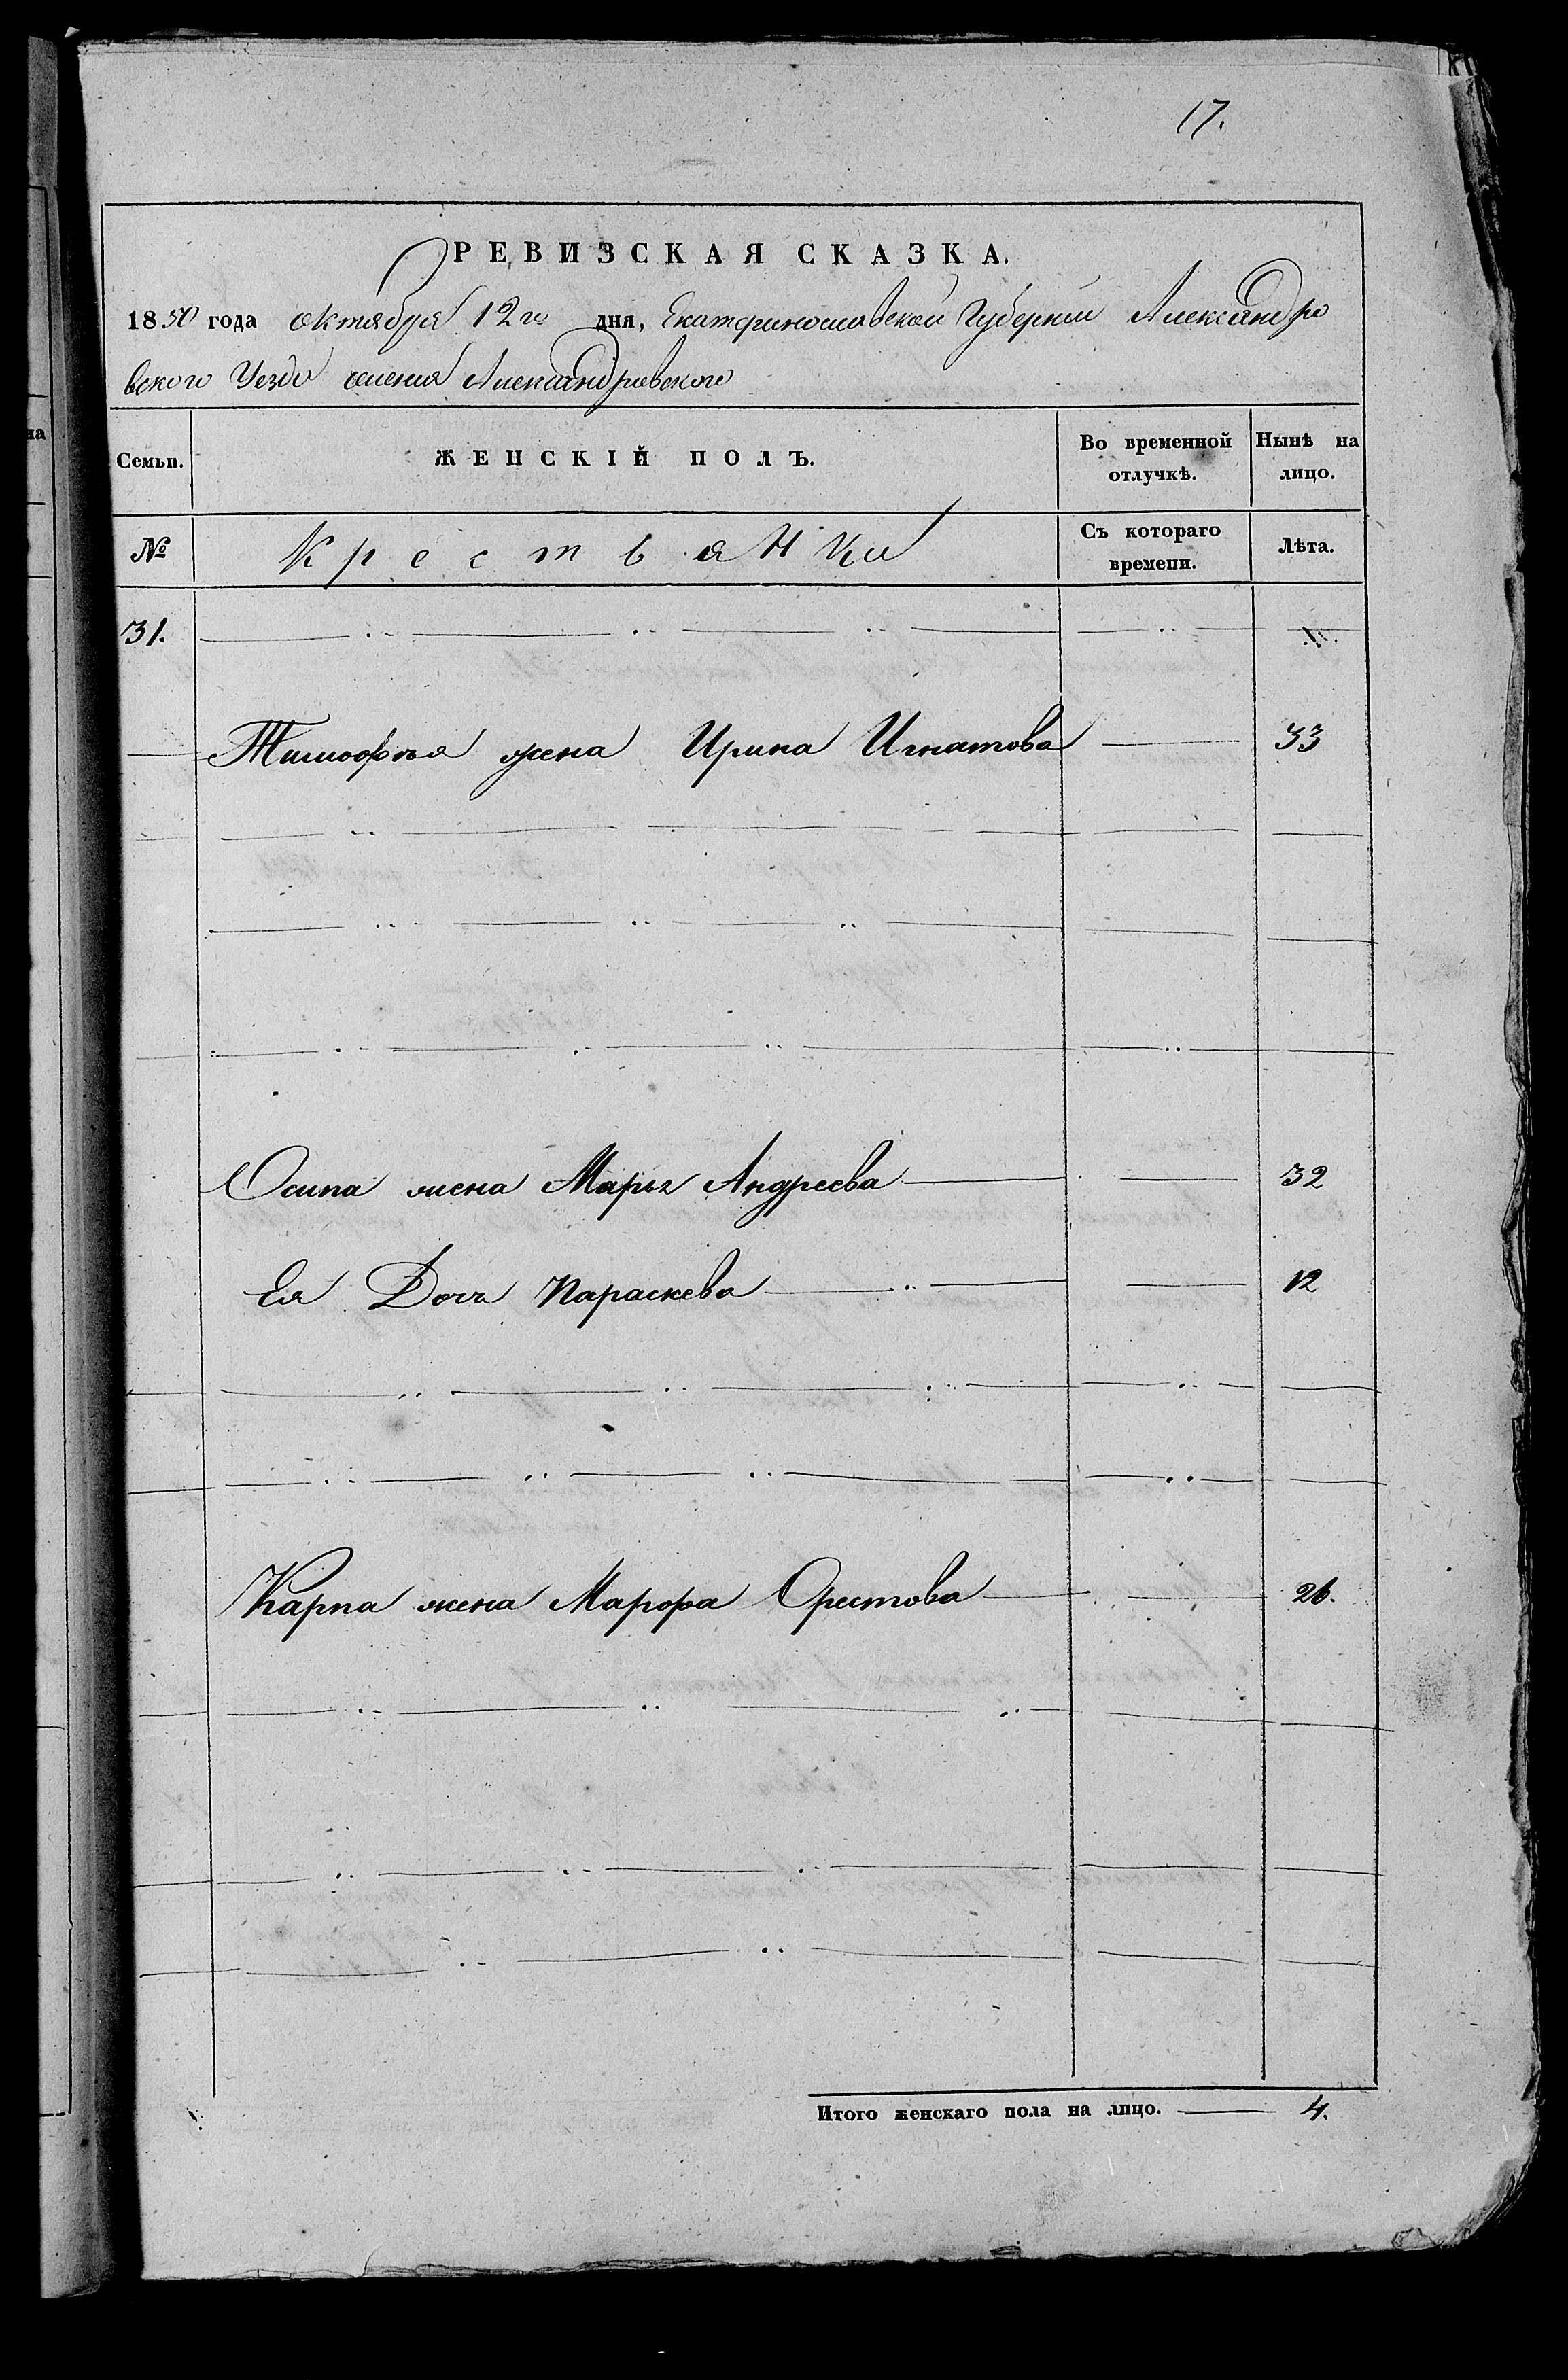 17.
РЕВИЗСКАЯ СКАЗКА.
1850 года октября 12го дня, Екатеринославской Губернии Александро
вского Уезда имения Александровского
Семьи. ЖЕНСКІЙ ПОЛЪ. Во временной отлучкѣ. Нынѣ на лицо.
№ Крестьянки Съ котораго времени. Лѣта.
31.
Тимофея жена Ирина Игнатова 33
Осипа жена Марья Андреева 32
Ея Дочь Параскева 12
Карпа жена Марфа Орестова 26.
Итого женскаго пола на лицо. 4.
на